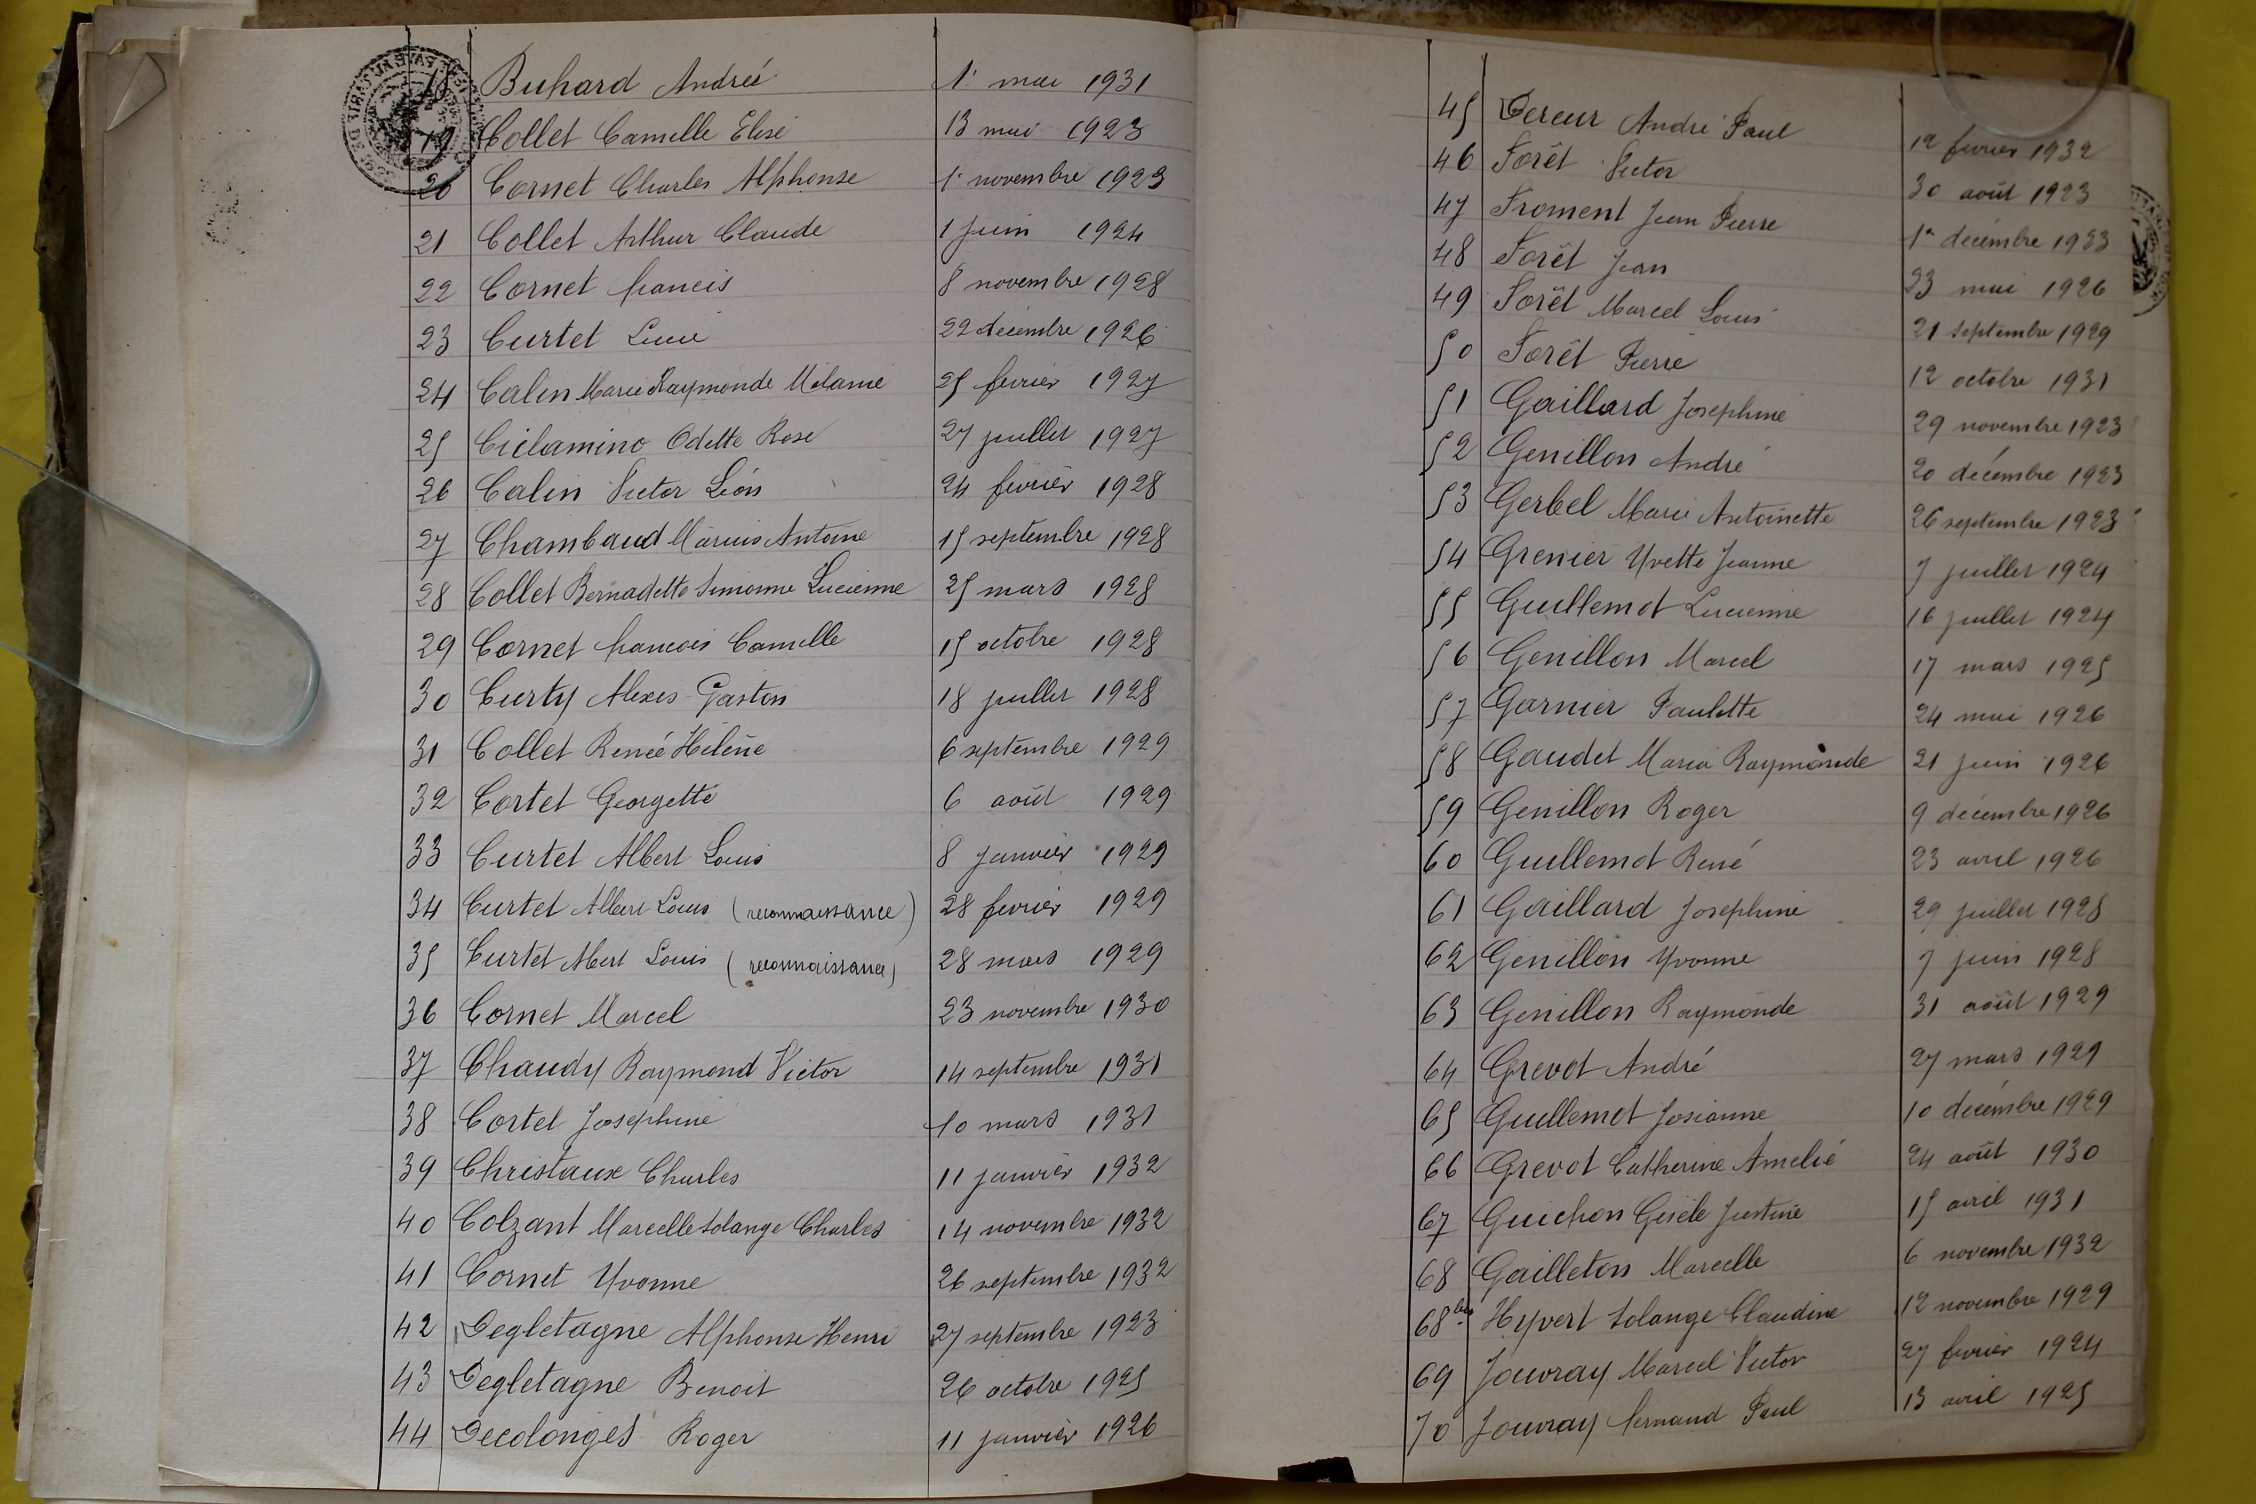 18 Buhard Andrée 1er mai 1931
19 Collet Camille Elisé 13 mai 1923
20 Cornet Charles Alphonse 1er novembre 1923
21 Collet Arthur Claude 1 juin 1924
22 Cornet francis 8 novembre 1928
23 Curtet Lucie 22 décembre 1926
24 Calin Marie Raymonde Mélanie 25 février 1927
25 Ciclamino Odette Rose 27 juillet 1927
26 Calin Victor Léon 24 février 1928
27 Chambaud Marius Antoine 15 septembre 1928
28 Collet Bernadette Simonne Lucienne 25 mars 1928
29 Cornet francois Camille 15 octobre 1928
30 Curty Alexis Gaston 18 juillet 1928
31 Collet Renée Hélène 6 septembre 1929
32 Cortet Georgette 6 août 1929
33 Curtet Albert Louis 8 janvier 1929
34 Curtet Albert Louis (reconnaissance) 28 février 1929
35 Curtet Albert Louis (reconnaissance) 28 mars 1929
36 Cornet Marcel 23 novembre 1930
37 Chaudy Raymond Victor 14 septembre 1931
38 Cortel Joséphine 10 mars 1931
39 Christaux Charles 11 janvier 1932
40 Colzant Marcelle Solange Charles 14 novembre 1932
41 Cornet Yvonne 26 septembre 1932
42 Degletagne Alphonse Henri 27 septembre 1923
43 Degletagne Benoit 26 octobre 1925
44 Decolonges Roger 11 janvier 1926
45 Dereur André Paul 12 février 1932
46 Forêt Victor 30 août 1923
47 Froment Jean Pierre 1er décembre 1923
48 Forêt Jean 23 mai 1926
49 Forêt Marcel Louis 21 septembre 1929
50 Forêt Pierre 12 octobre 1931
51 Gaillard Joséphine 29 novembre 1923
52 Genillon André 20 décembre 1923
53 Gerbel Marie Antoinette 26 septembre 1923
54 Grenier Yvette Jeanne 7 juillet 1924
55 Guillemot Lucienne 16 juillet 1924
56 Genillon Marcel 17 mars 1925
57 Garnier Paulette 24 mai 1926
58 Gaudet Maria Raymonde 21 juin 1926
59 Genillon Roger 9 décembre 1926
60 Guillemot René 23 avril 1926
61 Gaillard Joséphine 29 juillet 1928
62 Genillon Yvonne 7 juin 1928
63 Genillon Raymonde 31 août 1929
64 Grevot André 27 mars 1929
65 Guillemot Josianne 10 décembre 1929
66 Grevot Catherine Amelié 24 août 1930
67 Guichon Gisèle Justine 15 avril 1931
68 Gailleton Marcelle 6 novembre 1932
68 bis Hyvert Solange Claudine 12 novembre 1929
69 Jouvray Marcel Victor 27 février 1924
70 Jouvray fernand Paul 13 avril 1925